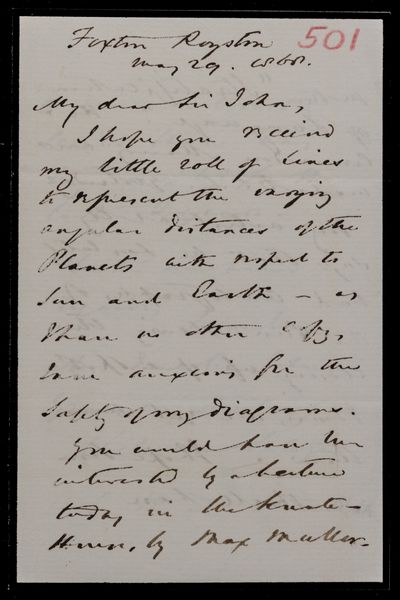 Foxton Royston 501
May 29. 1868.
My dear Sir John,
I hope you received
my little roll of lines
to represent the varying
angular distances of the
Planets with respect to
Sun and Earth – as
I have no other copy,
I am anxious for the
safety of my diagrams.
You would have been
interested by a lecture
today in the Senate-
House, by Max Muller –